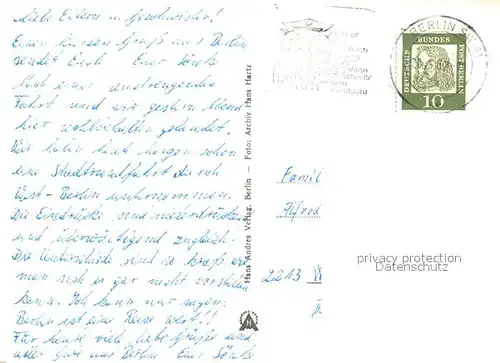 Liebe Eltern u. Geschwister!
Einen lieben Gruß aus Berlin
sendet Euch Eure Sönke
Nach einer anstrengenden
Fahrt sind wir gestern Abend
hier wohlbehalten gelandet.
Wir haben heute morgen schon
eine Stadtrundfahrt durch
West-Berlin unternommen.
Die Eindrücke sind niederdrückend
und überwältigend zugleich.
Die Unterschiede sind so kraß wie
man sich es gar nicht vorstellen
kann. Ich kann nur sagen:
Berlin ist eine Reise wert!!
Für heute viel liebe Grüße und
alles Gute aus Berlin Eure Sönke
Hans Andres Verlag, Berlin — Foto: Archiv Hans Hartz
BERLIN SW
DEUTSCHE BUNDES POST BERLIN
10
Famil
Alfred
2213 W
privacy protection
Datenschutz